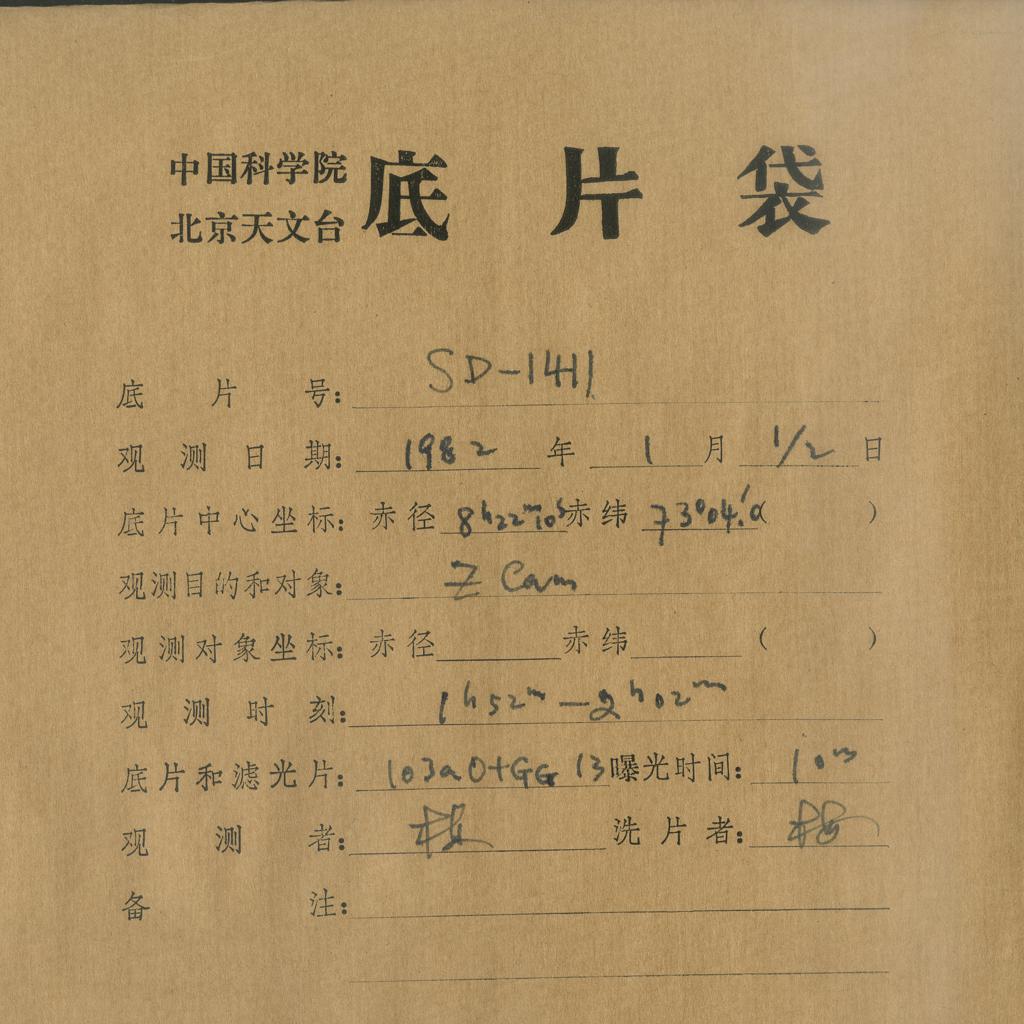 中国科学院
北京天文台 底片袋
底片号: SD-1411
观测日期: 1982 年 1 月 1/2 日
底片中心坐标: 赤径 8h22m10s 赤纬 73°04.'0 ( )
观测目的和对象: Z Cam
观测对象坐标: 赤径 赤纬 ( )
观测时刻: 1h52m—2h02m
底片和滤光片: 103aO+GG 13 曝光时间: 10m
观测者: 洗片者:
备注: